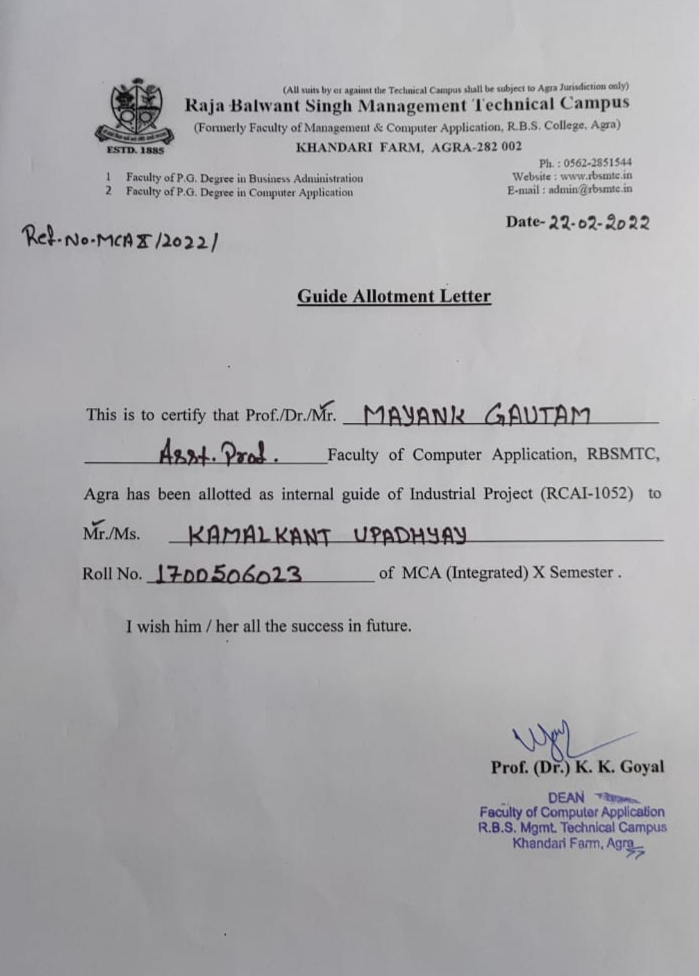 (All suits by or against the Technical Campus shall be subject to Agra Jurisdiction only)
Raja Balwant Singh Management Technical Campus
(Formerly Faculty of Management & Computer Application, R.B.S. College, Agra)
ESTD. 1885
KHANDARI FARM, AGRA-282 002
Ph. : 0562-2851544
1 Faculty of P.G. Degree in Business Administration
Website : www.rbsmtc.in
2 Faculty of P.G. Degree in Computer Application
E-mail : admin@rbsmtc.in
Date- 22-02-2022
Ref-No-MCA X/2022/
Guide Allotment Letter
This is to certify that Prof./Dr./Mr. MAYANK GAUTAM
Asst. Prof. Faculty of Computer Application, RBSMTC,
Agra has been allotted as internal guide of Industrial Project (RCAI-1052) to
Mr./Ms. KAMALKANT UPADHYAY
Roll No. 1700506023 of MCA (Integrated) X Semester .
I wish him / her all the success in future.
Prof. (Dr.) K. K. Goyal
DEAN
Faculty of Computer Application
R.B.S. Mgmt. Technical Campus
Khandari Farm, Agra